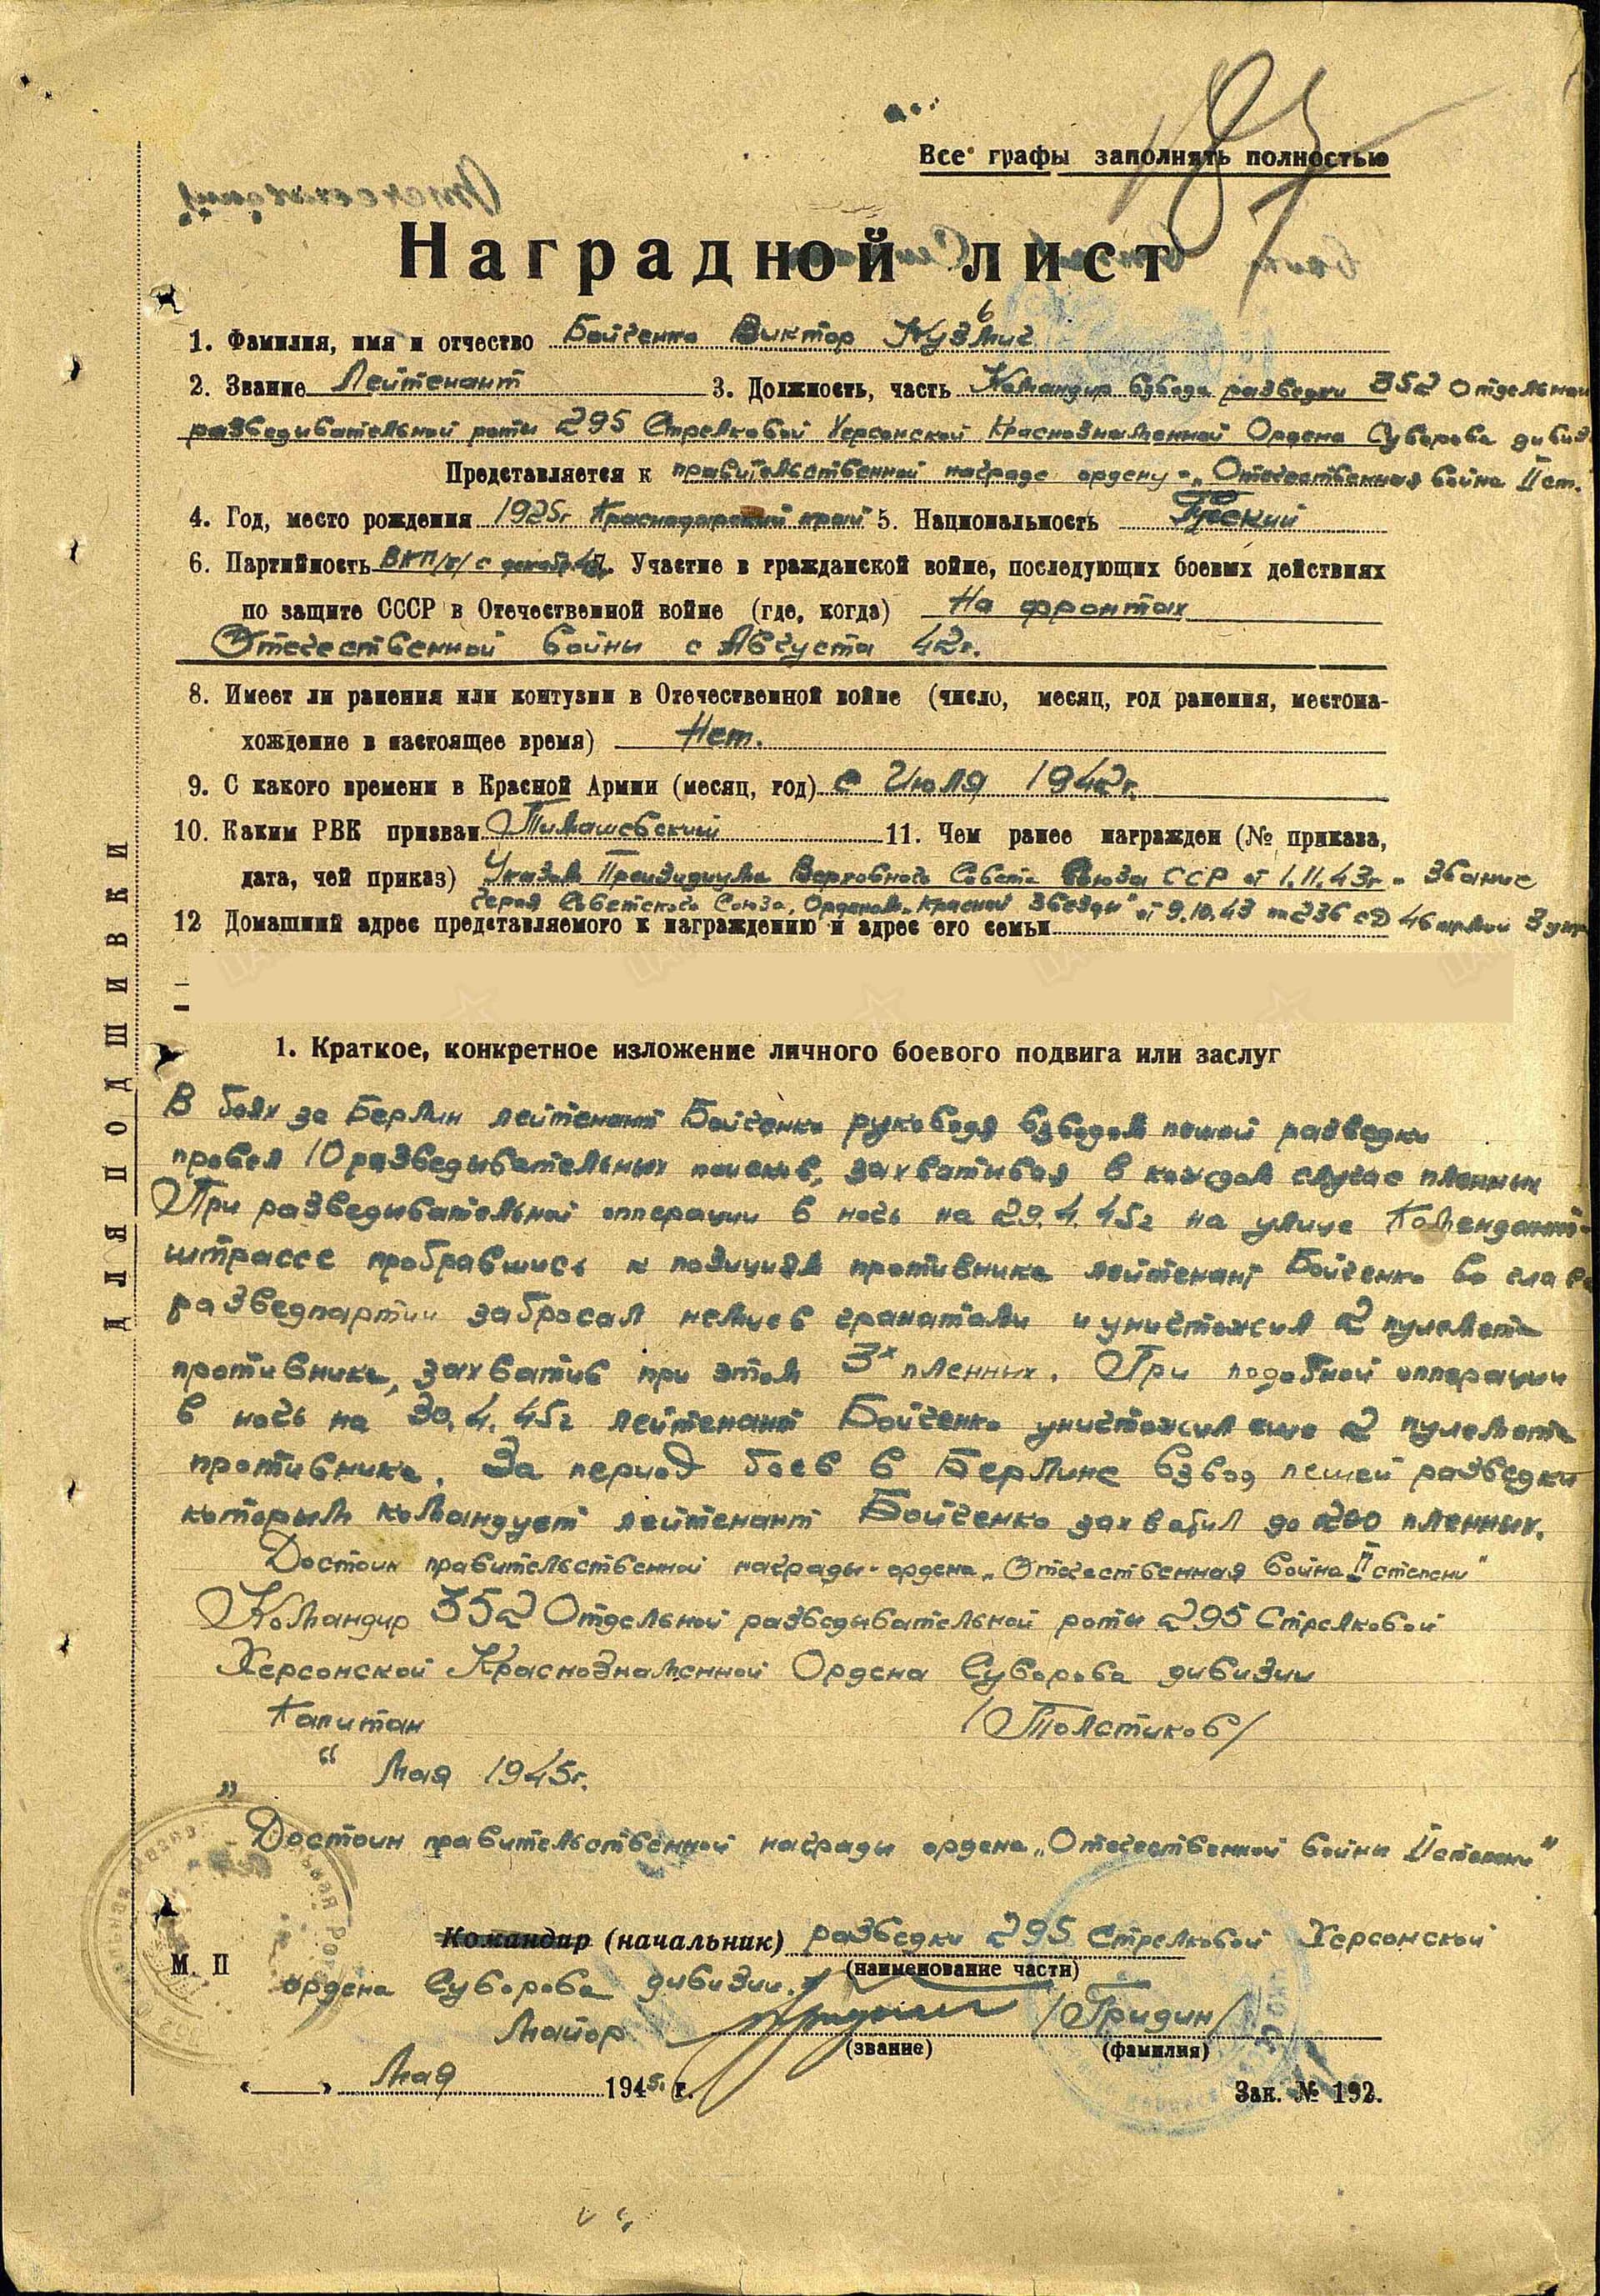 Все графы заполнять полностью
Наградной лист
1. Фамилия, имя и отчество Бойченко Виктор Кузьмич
2. Звание Лейтенант 3. Должность, часть Командир взвода разведки 352 Отдельной
разведывательной роты 295 Стрелковой Херсонской Краснознаменной Ордена Суворова дивиз
Представляется к правительственной награде ордену - „Отечественная война II ст.
4. Год, место рождения 1925г Краснодарский край 5. Национальность Русский
6. Партийность ВКП/б/ с 7. Участие в гражданской войне, последующих боевых действиях
по защите СССР в Отечественной войне (где, когда) На фронтах
Отечественной войны с Августа 42г.
8. Имеет ли ранения или контузии в Отечественной войне (число, месяц, год ранения, местона-
хождение в настоящее время) Нет.
9. С какого времени в Красной Армии (месяц, год) с Июля 1942г.
10. Каким РВК призван Тимашевский 11. Чем ранее награжден (№ приказа,
дата, чей приказ) Указом Президиума Верховного Совета Союза ССР от 1.11.43г - Звание
героя Советского Союза, Орденом „Красной Звезды" от 9.10.43 по 236 сд 46 армии 3 укр
12 Домашний адрес представляемого к награждению и адрес его семьи
1. Краткое, конкретное изложение личного боевого подвига или заслуг
В боях за Берлин лейтенант Бойченко руководя взводом пешей разведки
провел 10 разведывательных поисков, захватывая в каждом случае пленных
При разведывательной опперации в ночь на 29.4.45г на улице Комендант-
штрассе пробравшись к позициям противника лейтенант Бойченко во главе
разведпартии забросал немцев гранатами и уничтожил 2 пулемета
противника, захватив при этом 3х пленных. При подобной опперации
в ночь на 30.4.45г лейтенант Бойченко уничтожил еще 2 пулемета
противника. За период боев в Берлине взвод пешей разведки
которым командует лейтенант Бойченко захватил до 200 пленных.
Достоин правительственной награды - ордена „Отечественная война II степени"
Командир 352 Отдельной разведывательной роты 295 Стрелковой
Херсонской Краснознаменной Ордена Суворова дивизии
Капитан /Толстиков/
„ " Мая 1945г.
Достоин правительственной награды ордена „Отечественной войны II степени"
Командир (начальник) разведки 295 Стрелковой Херсонской
(наименование части)
М. П
ордена Суворова дивизии.
Майор /Гридин/
(звание) (фамилия)
«___» Мая 1945. г. Зак. № 192.
ДЛЯ ПОДШИВКИ